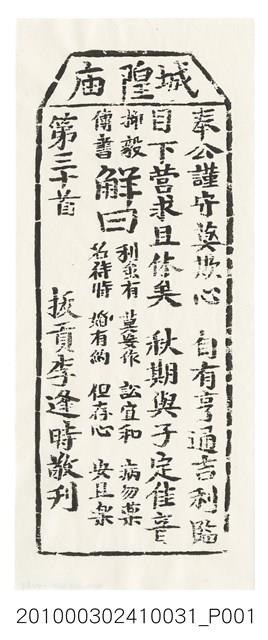 城隍庙
奉公謹守莫欺心 自有亨通吉利臨
目下营求且休矣 秋期與子定佳音
柳毅傳書
解曰
利益有 莫妄作 訟宜和 病勿藥
名待時 婚有納 但存心 安且樂
第三十首
拔貢李逢時敬刋
201000302410031_P001